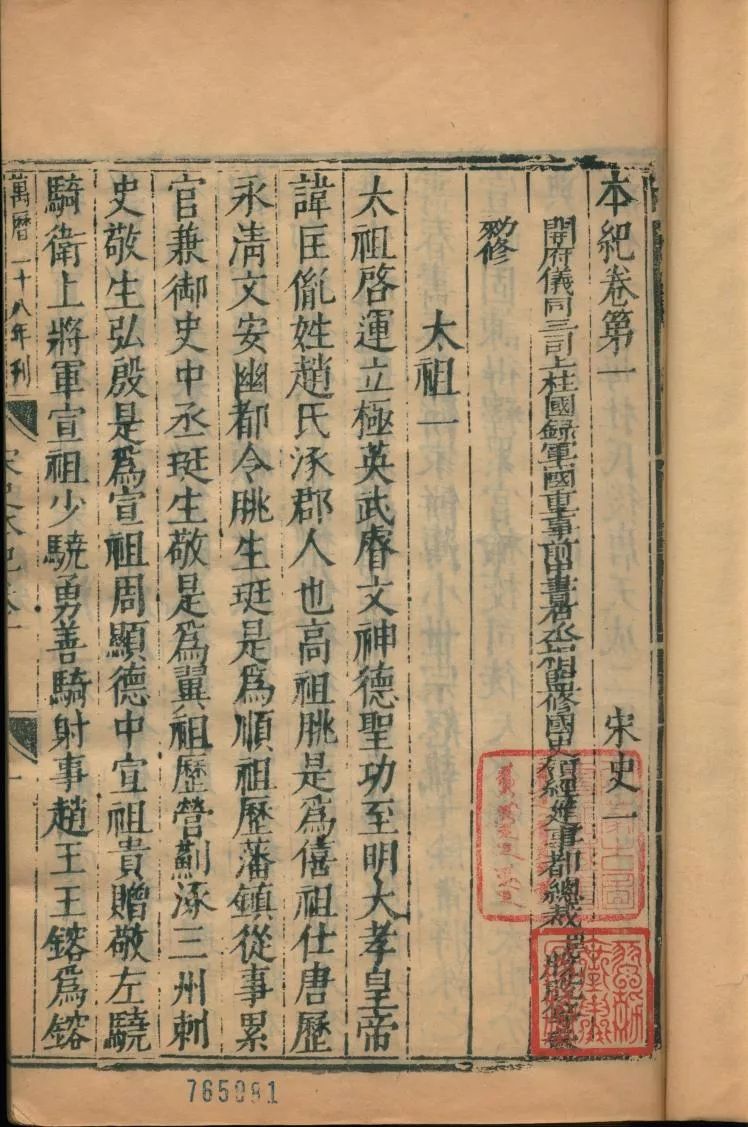 本紀卷第一　宋史一
開府儀同三司上柱國錄軍國重事前中書右丞相監修國史領經筵事都總裁
勑修
太祖一
太祖啓運立極英武睿文神德聖功至明大孝皇帝
諱匡胤姓趙氏涿郡人也高祖朓是爲僖祖仕唐歷
永清文安幽都令朓生珽是爲順祖歷藩鎮從事累
官兼御史中丞珽生敬是爲翼祖歷營薊涿三州刺
史敬生弘殷是爲宣祖周顯德中宣祖貴贈敬左驍
騎衛上將軍宣祖少驍勇善騎射事趙王王鎔爲鎔
萬曆二十八年刊
宋史本紀卷一
一
765091